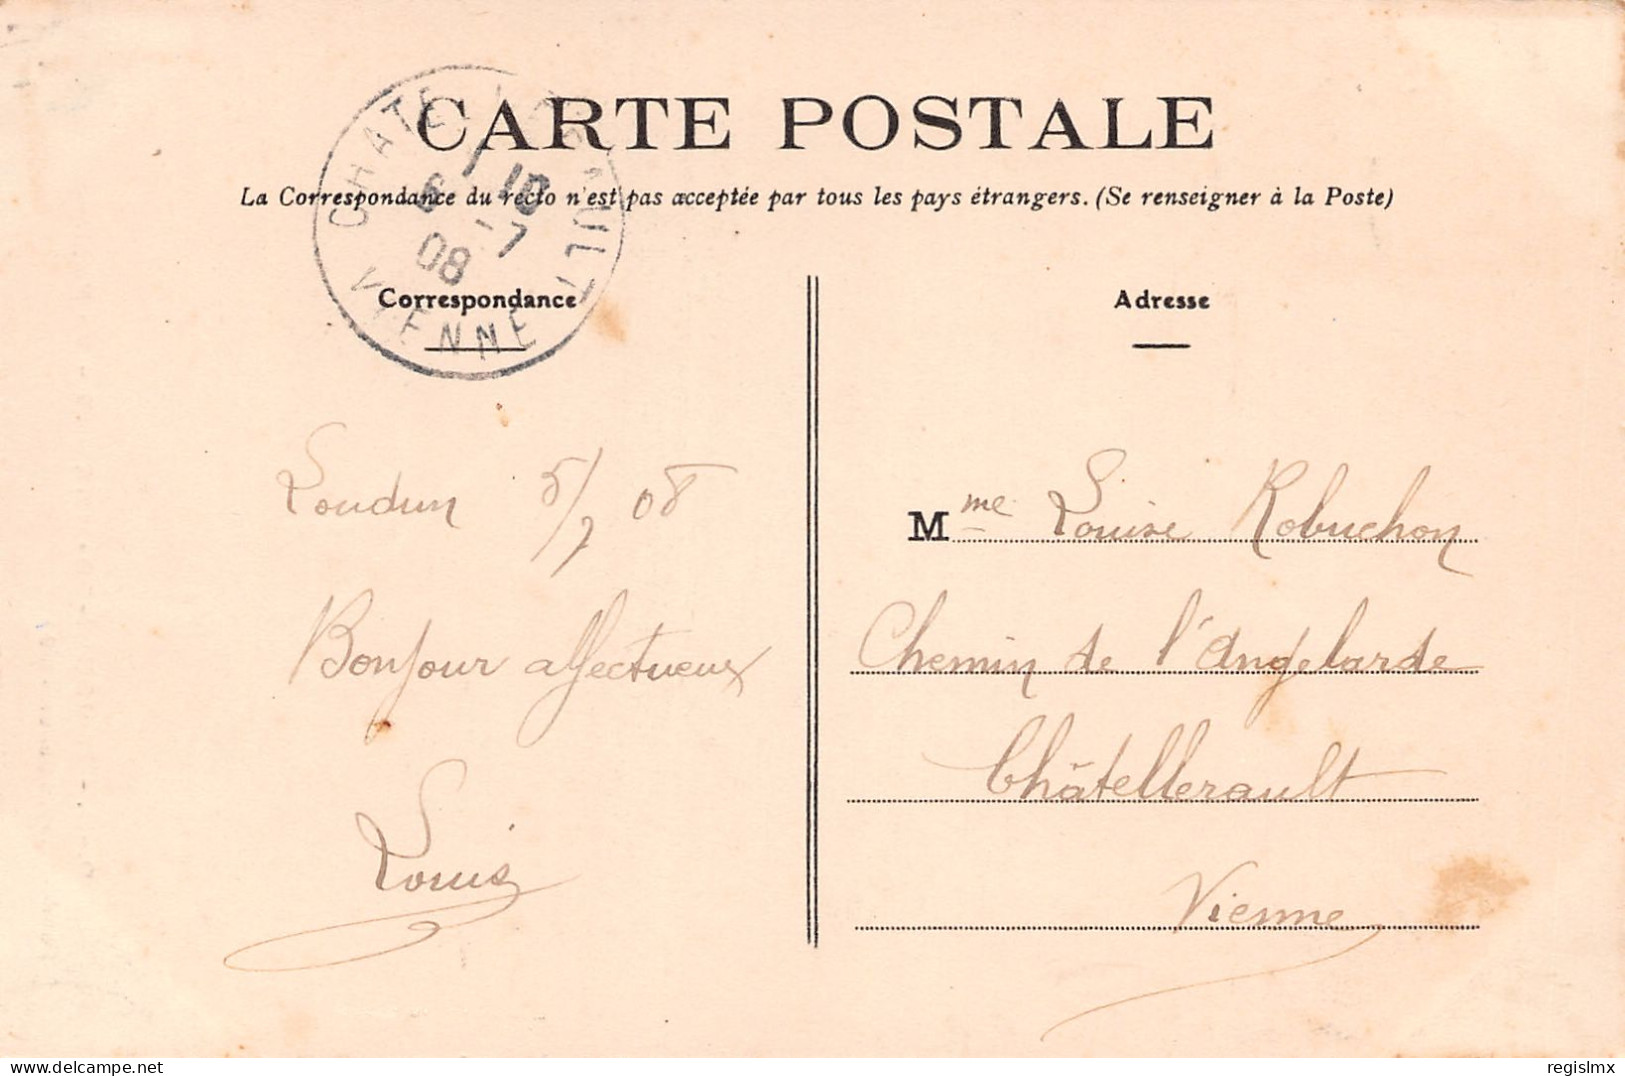 CARTE POSTALE
La Correspondance du recto n'est pas acceptée par tous les pays étrangers. (Se renseigner à la Poste)
CHATELLERAULT
6 10
-7
08
VIENNE
Correspondance
Loudun 5/7 08
Bonjour affectueux
Louis
Adresse
Mme Louise Robuchon
Chemin de l'Angelarde
Châtellerault
Vienne
delcampe.net
regislmx